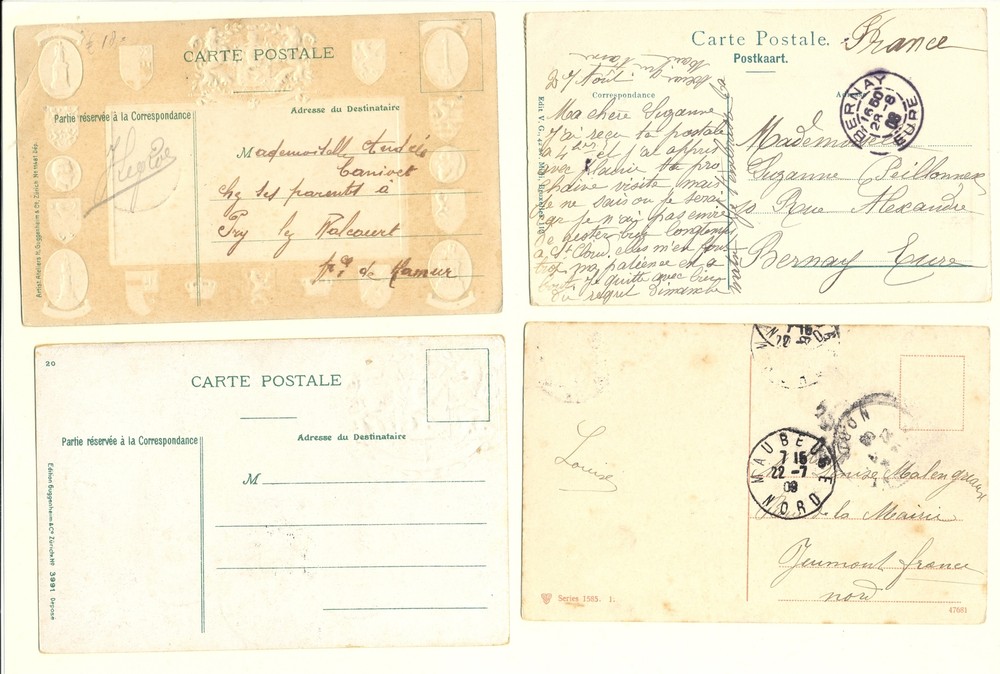 CARTE POSTALE
Partie réservée à la Correspondance
Adresse du Destinataire
Mademoiselle Andrée
Canivet
chez ses parents à
Pry lez Walcourt
de Namur
Artist. Ateliers H. Guggenheim & Co., Zürich
Carte Postale.
Postkaart.
France
27 Août
Correspondance
Ma chère Suzanne
J'ai reçu ta postale
et j'ai appris
avec plaisir ta pro
chaine visite mais
je ne sais ou je serai
car je n'ai pas envie
de rester très longtemps
à St
patience est à
bout je quitte avec bien
du regret Dimanche
Mademoiselle
Suzanne
Rue Alexandre
Bernay Eure
BERNAY
EURE
20
CARTE POSTALE
Partie réservée à la Correspondance
Adresse du Destinataire
M
Edition Guggenheim & Co Zürich No 3991 Déposé
Louise
MAUBEUGE
7 15
22 -7
09
NORD
Malengraux
Rue de la Mairie
Jeumont france
nord
Series 1585. 1.
47681